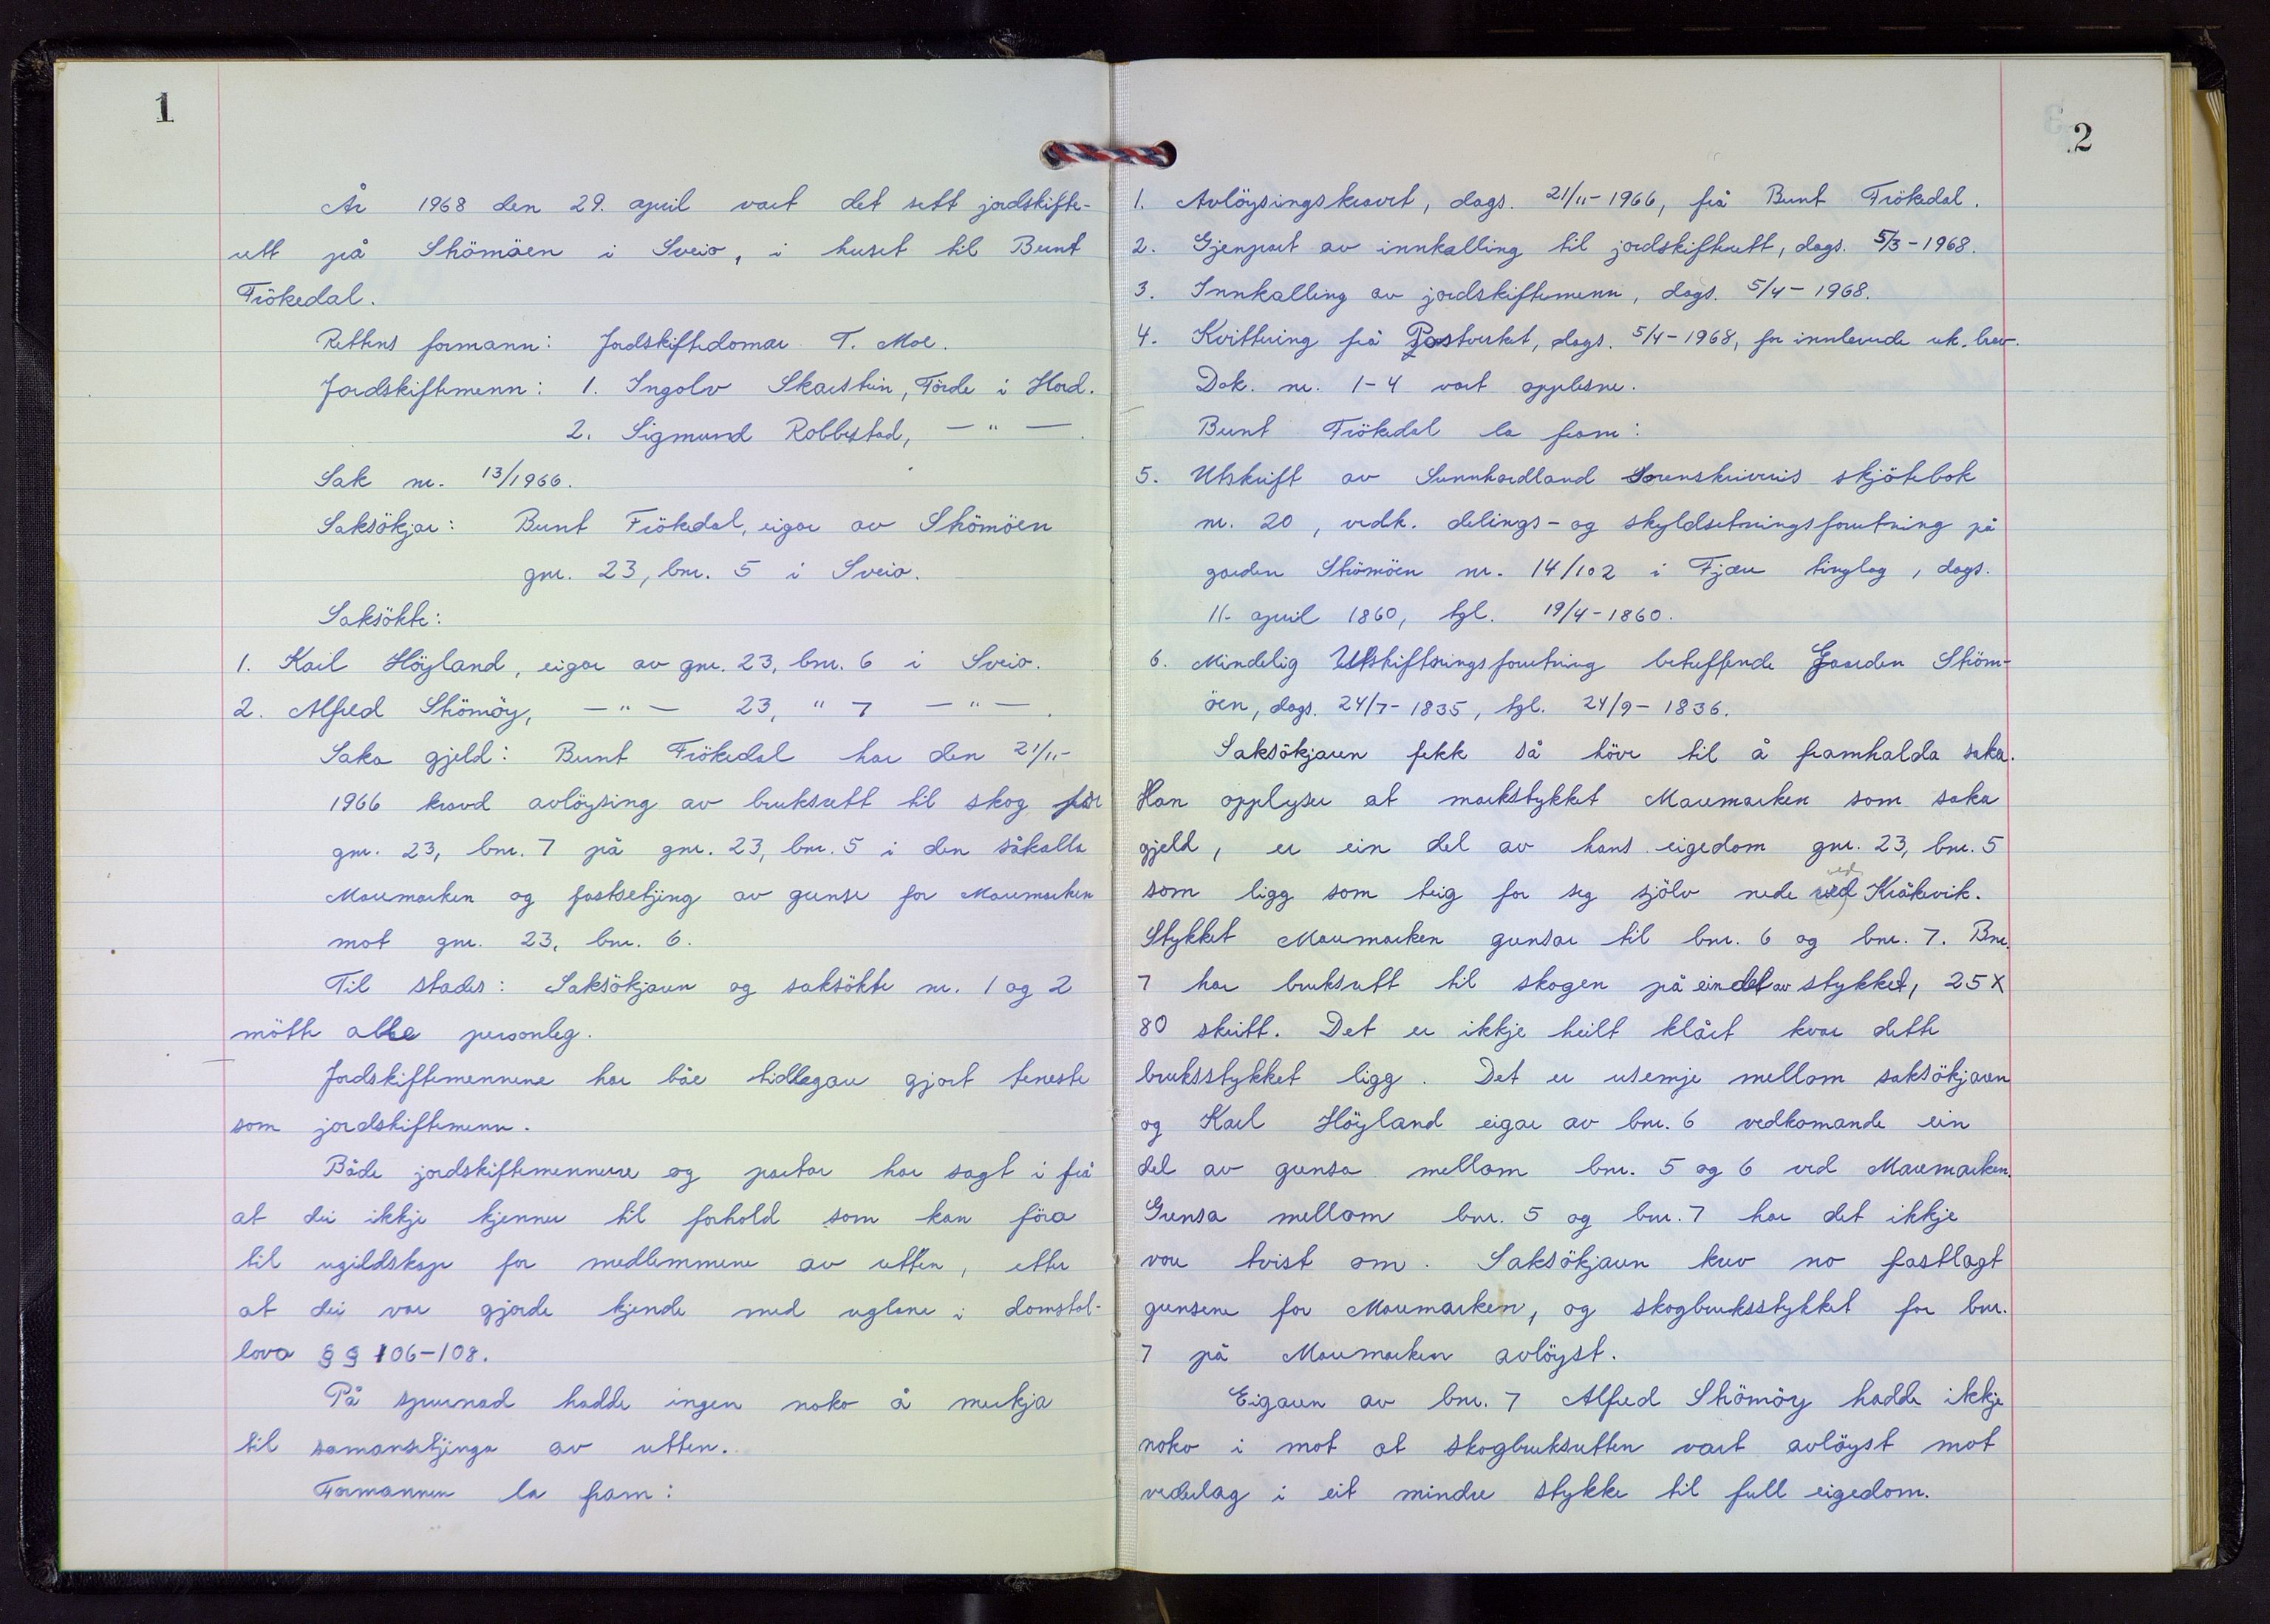 1
År 1968 den 29. april vart det sett jordskifte-
rett på Strömöen i Sveio, i huset til Bernt
Frökedal.
Rettens formann: Jordskiftedomar T. Moe.
Jordskiftemenn: 1. Ingolv Skarstein, Förde i Hord.
2. Sigmund Robbestad, — " —.
Sak nr. 13/1966.
Saksökjar: Bernt Frökedal, eigar av Strömöen
gnr. 23, bnr. 5 i Sveio.
Saksökte:
1. Karl Höyland, eigar av gnr. 23, bnr. 6 i Sveio.
2. Alfred Strömöy, — " — 23, " 7 — " —.
Saka gjeld: Bernt Frökedal har den 21/11-
1966 kravd avlöysing av bruksrett til skog for
gnr. 23, bnr. 7 på gnr. 23, bnr. 5 i den såkalla
Maremarken og fastsetjing av grense for Maremarken
mot gnr. 23, bnr. 6.
Til stades: Saksökjaren og saksökte nr. 1 og 2
mötte alle personleg.
Jordskiftemennene har båe tidlegare gjort teneste
som jordskiftemenn.
Både jordskiftemennene og partar har sagt i frå
at dei ikkje kjenner til forhold som kan föra
til ugildskap for medlemmene av retten, etter
at dei var gjorde kjende med reglane i domstol-
lova §§ 106-108.
På spurnad hadde ingen noko å merkja
til samansetjinga av retten.
Formannen la fram:
2
1. Avlöysingskravet, dags. 21/11-1966, frå Bernt Frökedal.
2. Gjenpart av innkalling til jordskifterett, dags. 5/3-1968.
3. Innkalling av jordskiftemenn, dags. 5/4-1968.
4. Kvittering frå Postverket, dags. 5/4-1968, for innleverde rek. brev.
Dok. nr. 1-4 vart opplesne.
Bernt Frökedal la fram:
5. Utskrift av Sunnhordland Sorenskriveris skjötebok
nr. 20, vedk. delings- og skyldsetningsforretning på
garden Strömöen nr. 14/102 i Fjære tinglag, dags.
11. april 1860, tgl. 19/4-1860.
6. Mindelig Utskiftningsforretning betreffende Gaarden Ström-
öen, dags. 24/7-1835, tgl. 24/9-1836.
Saksökjaren fekk så höve til å framhalda saka.
Han opplyser at markstykket Maremarken som saka
gjeld, er ein del av hans eigedom gnr. 23, bnr. 5
som ligg som teig for seg sjölv nede ved Kråkevik.
Stykket Maremarken grensar til bnr. 6 og bnr. 7. Bnr.
7 har bruksrett til skogen på ein del av stykket, 25 x
80 skritt. Det er ikkje heilt klårt kvar dette
bruksstykket ligg. Det er usemje mellom saksökjaren
og Karl Höyland eigar av bnr. 6 vedkomande ein
del av grensa mellom bnr. 5 og 6 ved Maremarken.
Grensa mellom bnr. 5 og bnr. 7 har det ikkje
vore tvist om. Saksökjaren krev no fastlagt
grensene for Maremarken, og skogbruksstykket for bnr.
7 på Maremarken avlöyst.
Eigaren av bnr. 7 Alfred Strömöy hadde ikkje
noko i mot at skogbruksretten vart avlöyst mot
vederlag i eit mindre stykke til full eigedom.